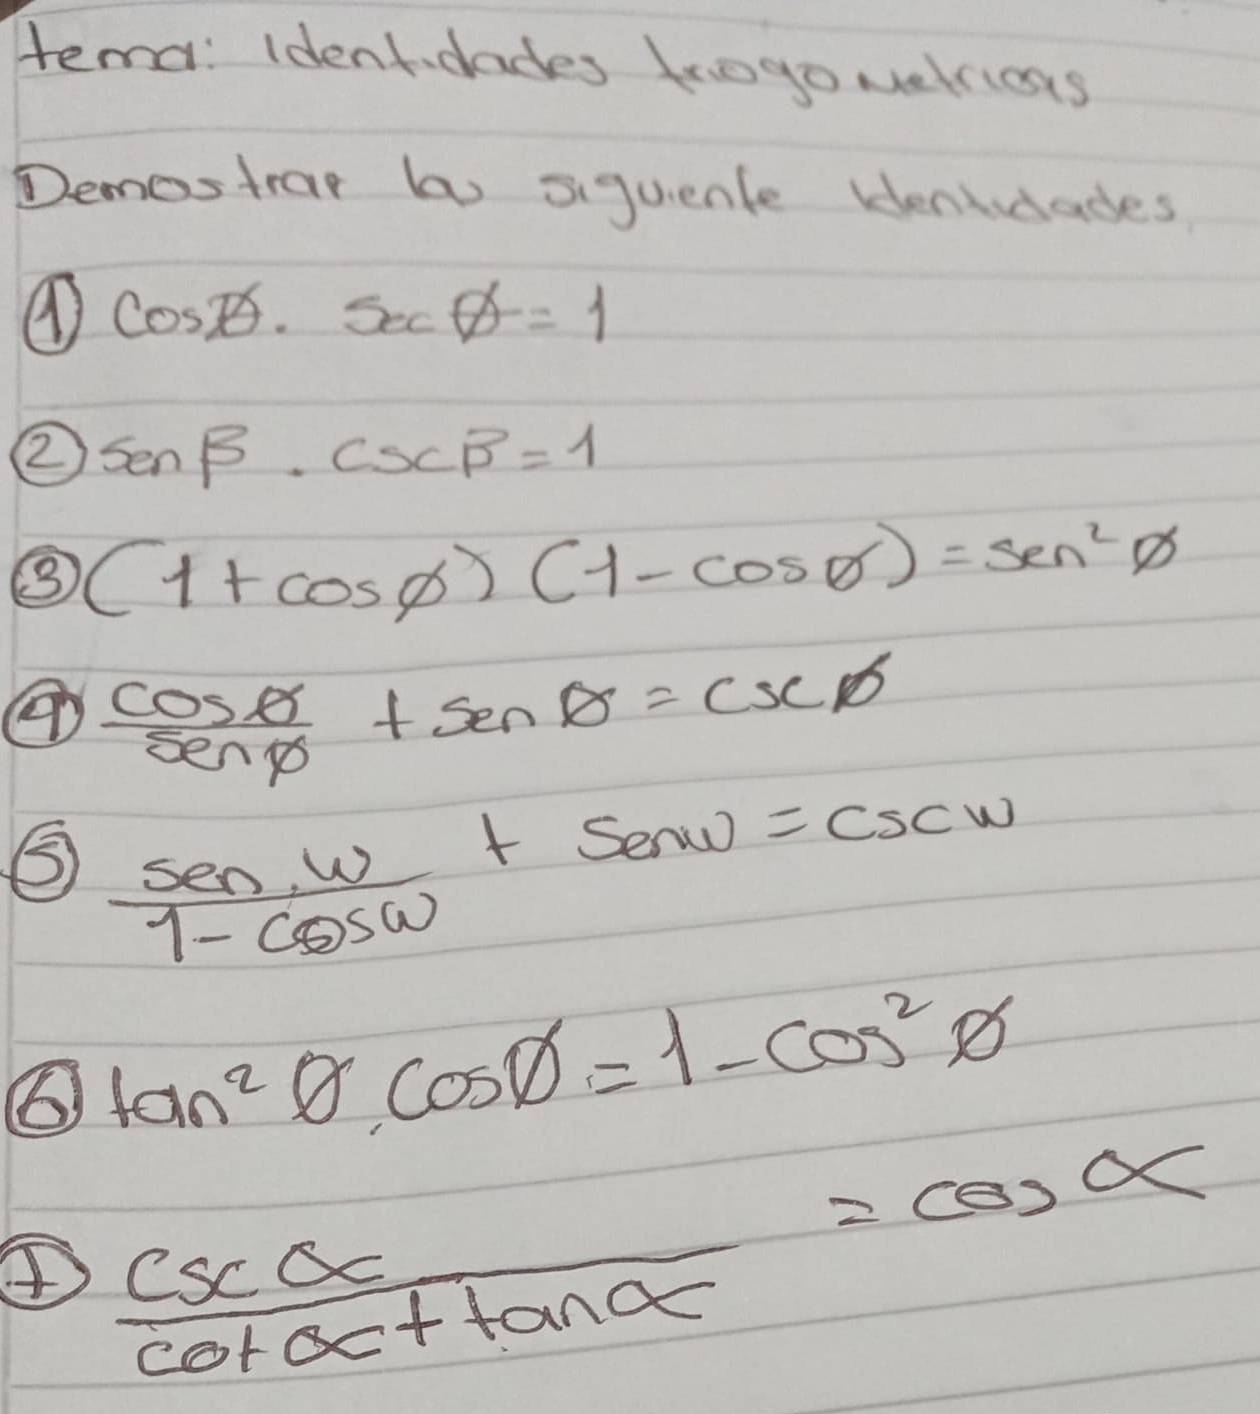 tema: Identidades trogometricas
Demostrar las siguiente Identidades.
① Cos Ø. Sec Ø = 1
② Sen β . CSC β = 1
③ (1 + cos Ø) (1 - cos Ø) = sen² Ø
④ cos Ø / sen Ø + sen Ø = csc Ø
⑤ sen w / 1 - cos w + Sen w = csc w
⑥ tan² Ø . Cos Ø = 1 - cos² Ø
⑦ Csc α / cot α + tan α = cos α